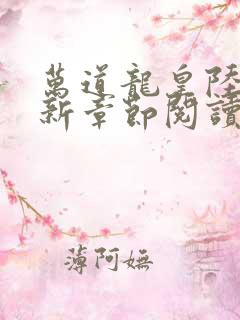 萬道龍皇陸
新章節閱讀
薄阿嫵